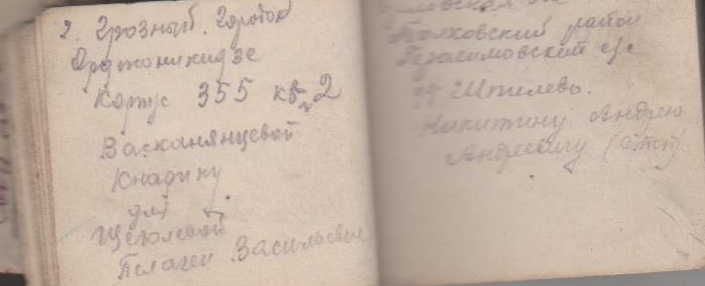 г. Грозный. Городок
Орджоникидзе
Корпус 355 кв. 2
Васканянцевой
Кнадику
для
Щеголевой
Пелагеи Васильевны
район
Герасимовский с/с
Шпилево.
Никитину Андрею
Андреевичу (отец)